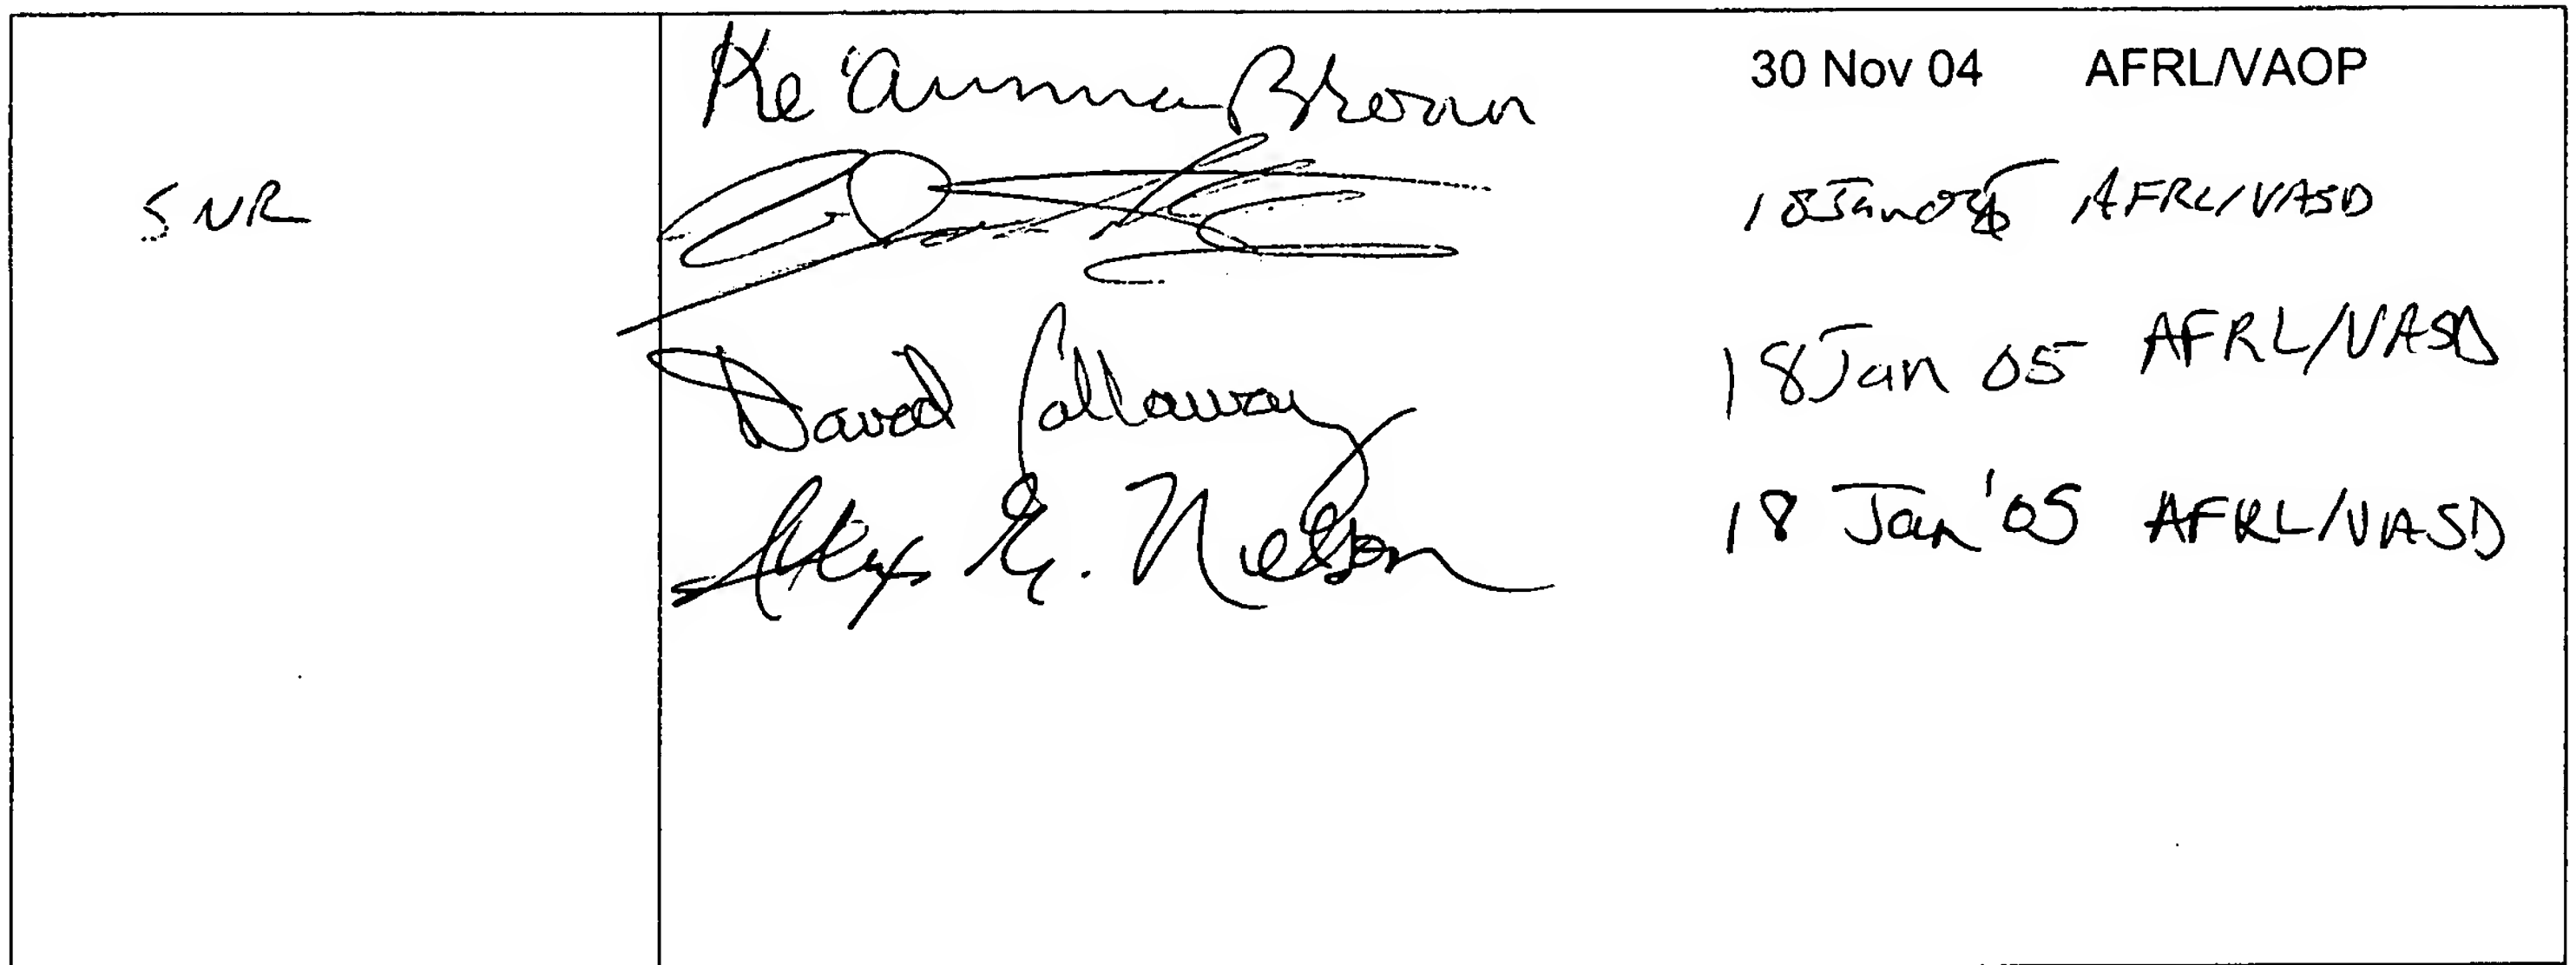 Ke'Aunna Brown 30 Nov 04 AFRL/VAOP
SNR 18 Jan 05 AFRL/VASD
David Callaway 18 Jan 05 AFRL/VASD
E. Nielson 18 Jan '05 AFRL/VASD